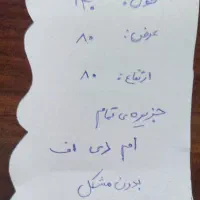 طول: ۱۴۰
عرض: ۸۰
ارتفاع: ۸۰
جزیره ی تمام
ام دی اف
بدون مشکل